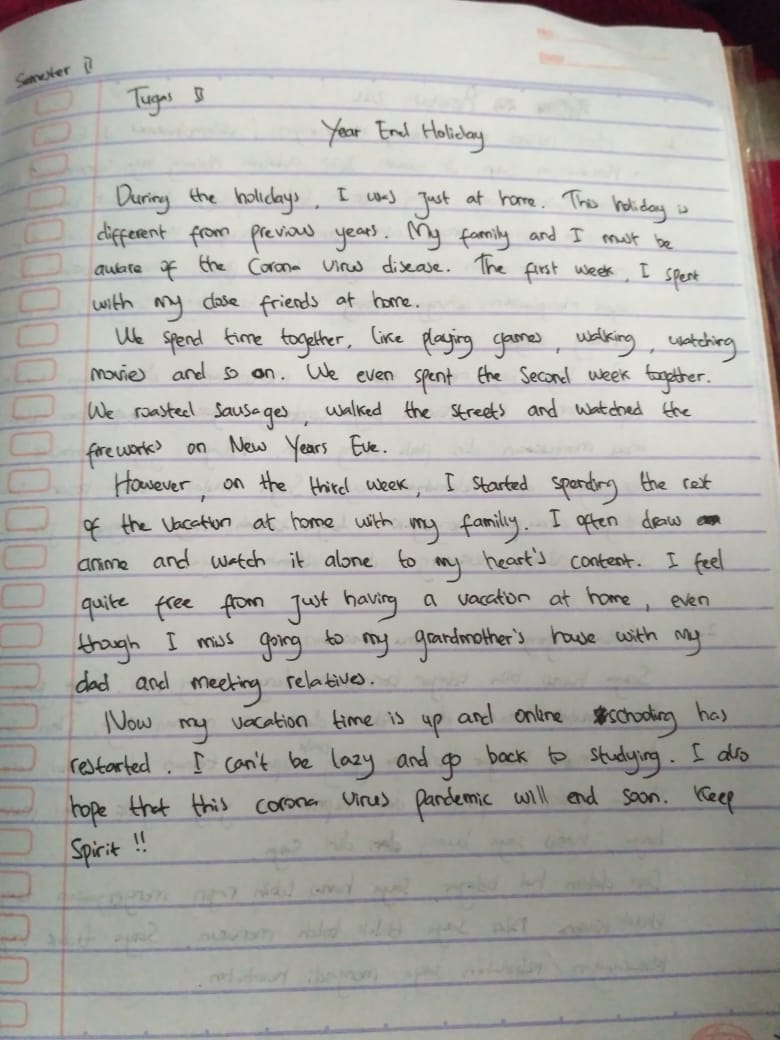 Semester II
Tugas II
Year End Holiday
During the holidays, I was just at home. This holiday is
different from previous years. My family and I must be
aware of the Corona virus disease. The first week, I spent
with my close friends at home.
We spend time together, like playing games, walking, watching
movies and so on. We even spent the second week together.
We roasted sausages, walked the streets and watched the
fireworks on New Years Eve.
However, on the third week, I started spending the rest
of the vacation at home with my family. I often draw
anime and watch it alone to my heart's content. I feel
quite free from just having a vacation at home, even
though I miss going to my grandmother's house with my
dad and meeting relatives.
Now my vacation time is up and online schooling has
restarted. I can't be lazy and go back to studying. I also
hope that this corona virus pandemic will end soon. Keep
Spirit !!